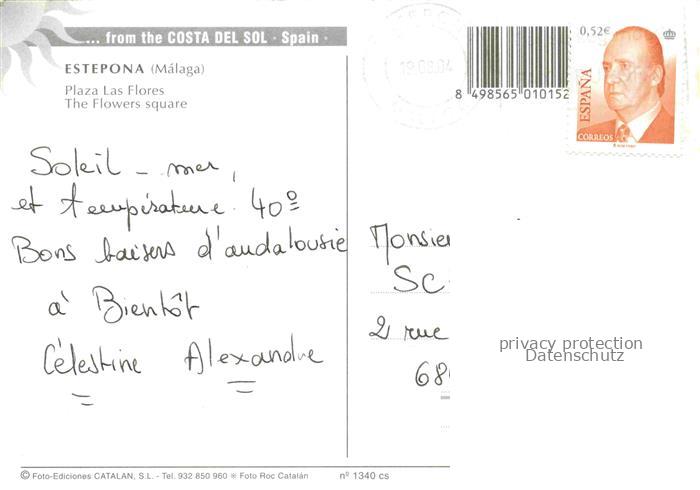 ... from the COSTA DEL SOL · Spain ·
ESTEPONA (Málaga)
Plaza Las Flores
The Flowers square
19 08 04
8 498565 010152
0,52€
ESPAÑA
CORREOS
Soleil - mer,
et température 40°
Bons baisers d'andalousie
à Bientôt
Célestine Alexandre
Monsie
SC
2 rue
68
privacy protection
Datenschutz
© Foto-Ediciones CATALAN, S.L. - Tel. 932 850 960 ※ Foto Roc Catalán
nº 1340 cs